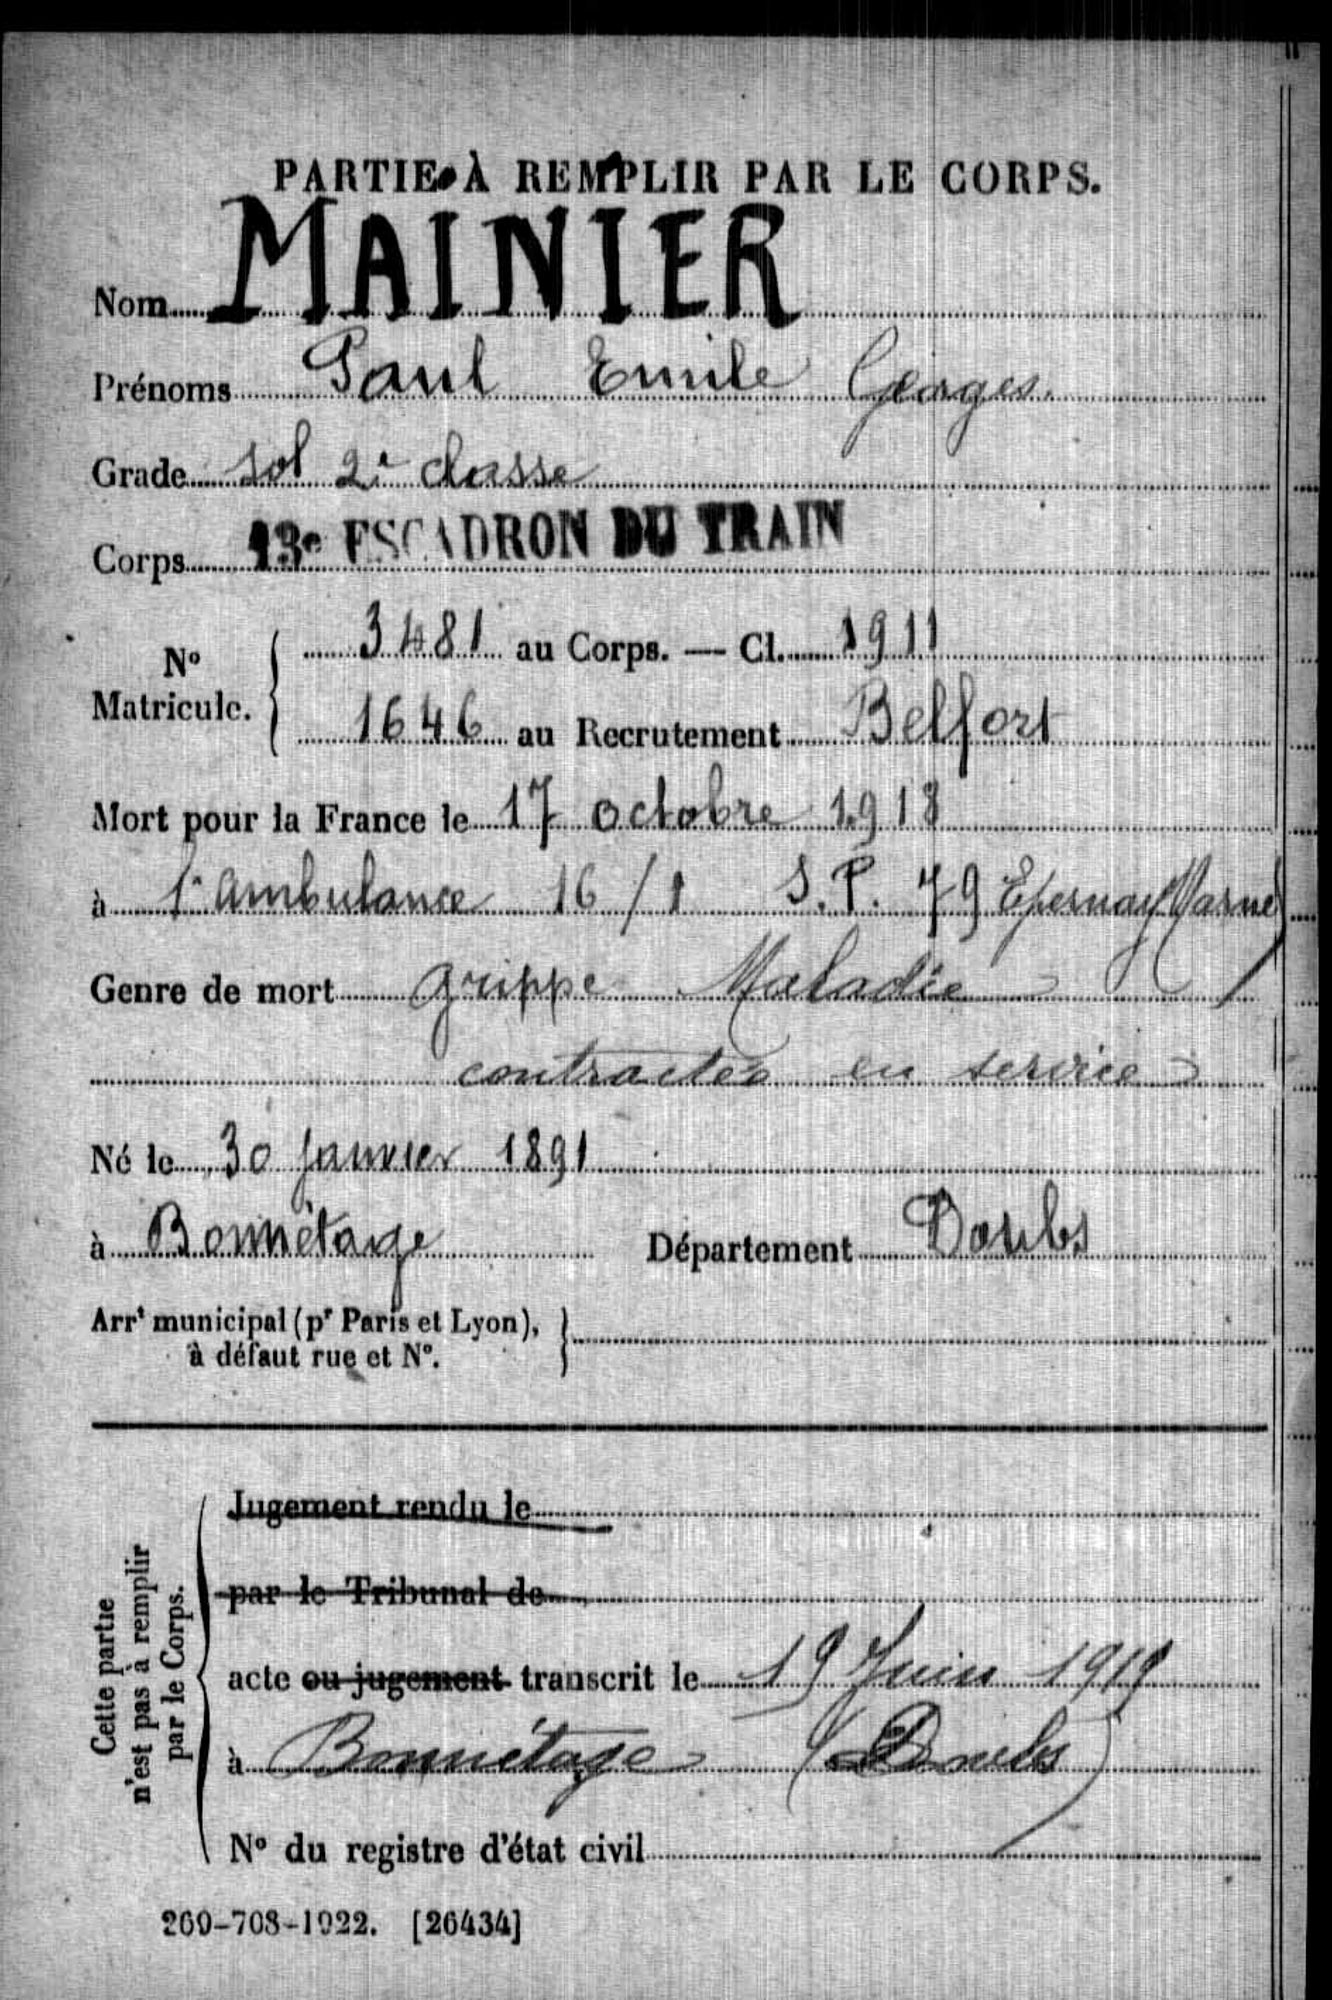 PARTIE À REMPLIR PAR LE CORPS.
Nom MAINIER
Prénoms Paul Emile Georges.
Grade sol 2e classe
Corps 13e ESCADRON DU TRAIN
No Matricule. { 3481 au Corps. — Cl. 1911
1646 au Recrutement Belfort
Mort pour la France le 17 octobre 1918
à l'ambulance 16/1 S.P. 79 Epernay (Marne)
Genre de mort grippe Maladie
contractée en service
Né le 30 janvier 1891
à Bonnétage Département Doubs
Arrt municipal (pr Paris et Lyon), }
à défaut rue et No.
Cette partie
n'est pas à remplir
par le Corps.
Jugement rendu le
par le Tribunal de
acte ou jugement transcrit le 19 Juin 1919
à Bonnétage (Doubs)
No du registre d'état civil
269-708-1922. [26434]